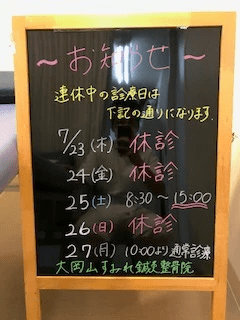 ～お知らせ～
連休中の診療日は
下記の通りになります.
7/23(木) 休診
24(金) 休診
25(土) 8:30～15:00
26(日) 休診
27(月) 10:00より通常診療
大岡山すみれ鍼灸整骨院